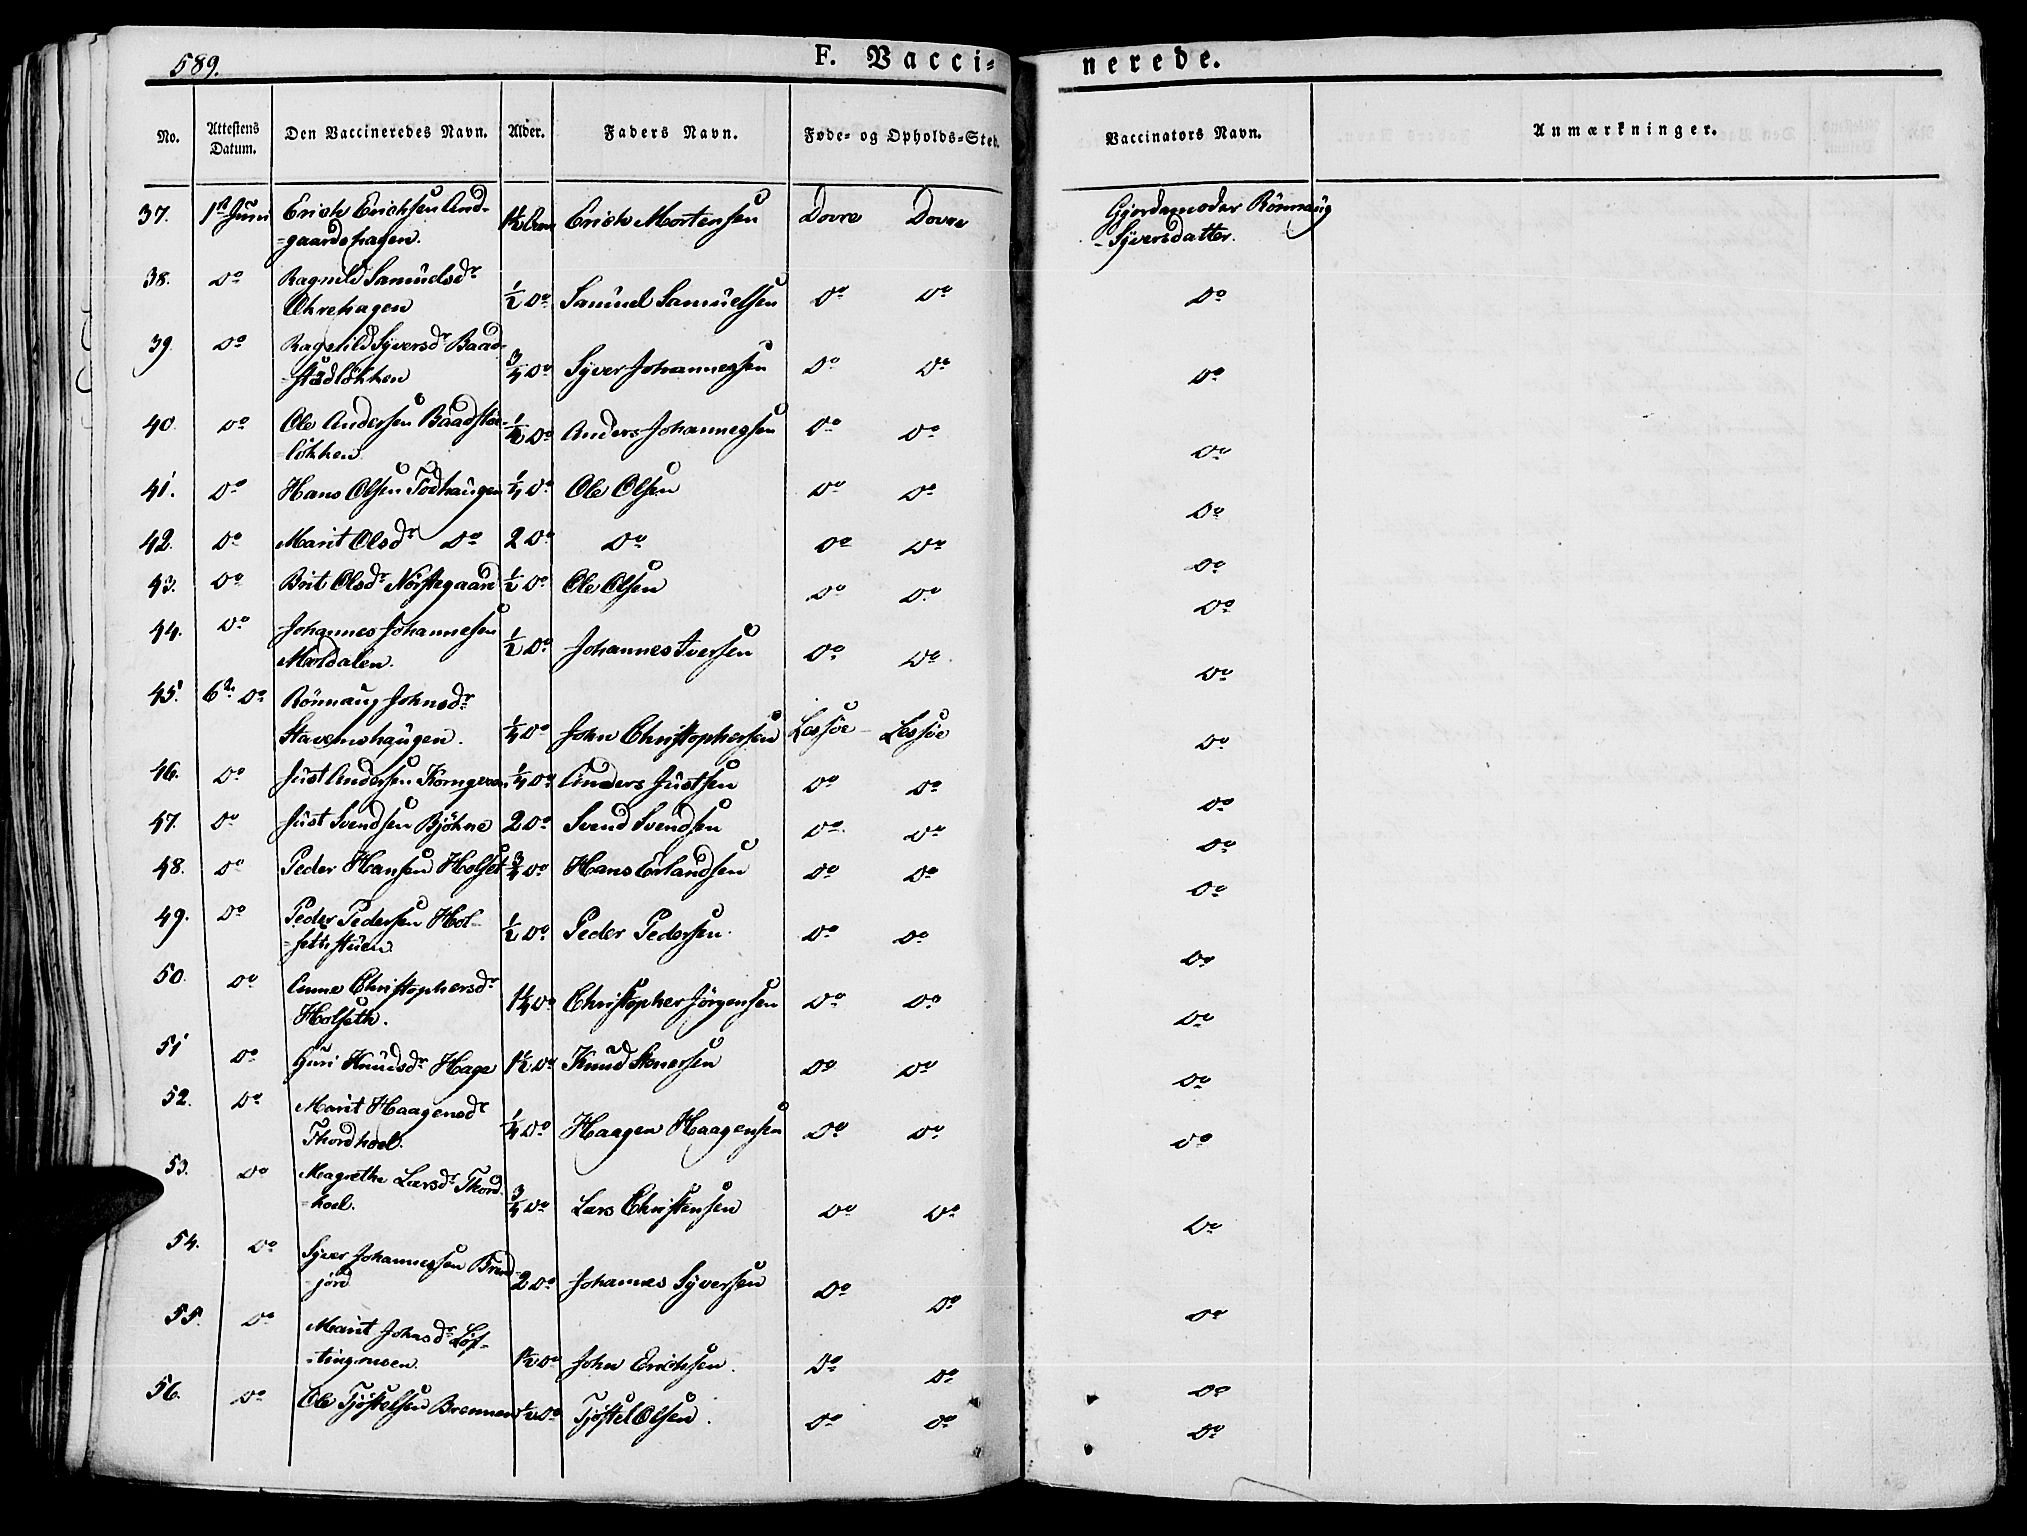 589.
F. Vacci-
nerede.
No. Attestens Datum. Den Vaccineredes Navn. Alder. Faders Navn. Føde- og Opholds-Sted. Vaccinators Navn. Anmærkninger.
37. 1st Juni Erick Ericksen And- 1½ Erick Mortensen Dovre Dovre Gjordemoder Rönnaug
=gaardshagen. -Syversdatter.
38. Do Ragnild Samuelsdr
Ohrehagen ½ Do Samuel Samuelsen Do Do Do
39. Do Ragnild Syversdr Baad-
-stadlökken ¾ Do Syver Johannessen Do Do Do
40. Do Ole Andersen Baadstad-
=lökken Do Anders Johannessen Do Do Do
41. Do Hans Olsen Todhaugen ¼ Do Ole Olsen Do Do Do
42. Do Marit Olsdr Do 2 Do Do Do Do Do
43. Do Brit Olsdr Nörstegaard ½ Do Ole Olsen Do Do Do
44. Do Johannes Johannesen
Mældalen. ½ Do Johannes Iversen Do Do Do
45. 6te Do Rönnaug Johnsdr
Stavemshaugen. ¼ Do John Christophersen Lessöe Lessöe Do
46. Do Just Andersen ¼ Do Anders Justsen Do Do Do
47. Do Just Svendsen Bjöhne 2 Do Svend Svendsen Do Do Do
48. Do Peder Hansen Holset ¾ Do Hans Erlandsen Do Do Do
49. Do Peder Pedersen Hol-
=sethstuen ½ Do Peder Pedersen. Do Do Do
50. Do Anne Christophersdr
Holseth. 1¼ Do Christopher Jörgensen Do Do Do
51 Do Guri Knudsdr Hage 1½ Do Knud Stenersen Do Do Do
52. Do Marit Haagensdr
Thordhoel. ¼ Do Haagen Haagensen Do Do Do
53. Do Magrethe Larsdr Thord-
=hoel. ¾ Do Lars Christensen Do Do Do
54. Do Syver Johannessen Brend-
-jord 2 Do Johannes Syversen Do Do Do
55. Do Marit Johnsdr Löf-
-tingsmoen. 1½ Do John Erichsen. Do Do Do
56. Do Ole Tjöstelsen Brennen ½ Do Tjöstel Olsen. Do Do Do